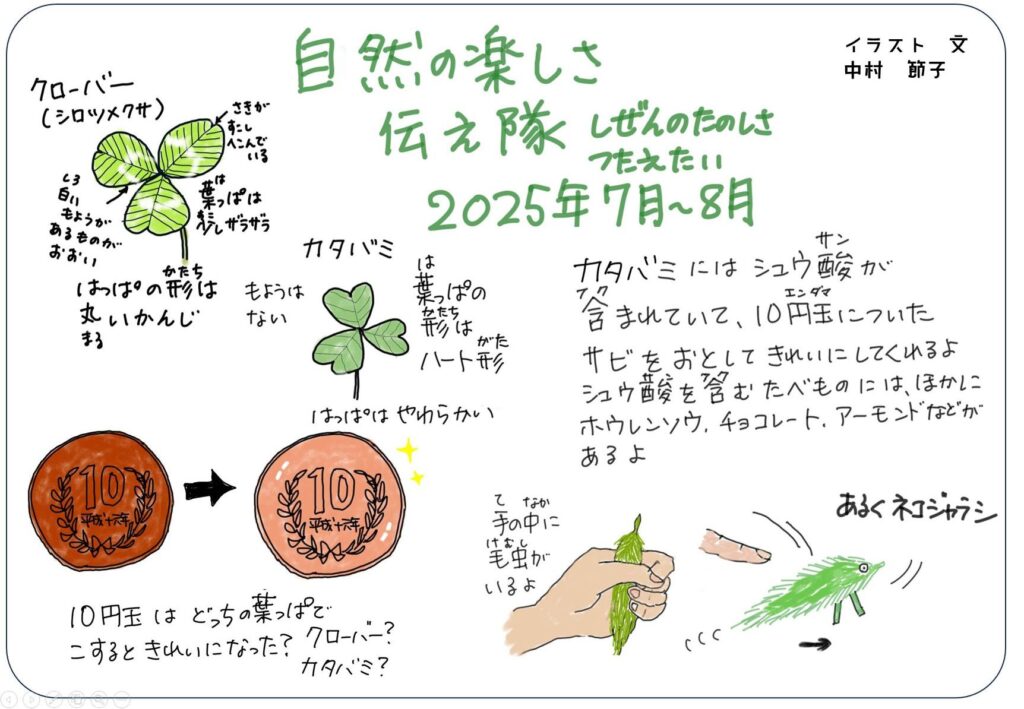 自然の楽しさ
伝え隊
しぜんのたのしさ
つたえたい
2025年7月~8月
イラスト 文
中村 節子
クローバー
(シロツメクサ)
さきが
すこし
へこんで
いる
しろ
白い
もようが
あるものが
おおい
は
葉っぱは
少しザラザラ
かたち
はっぱの形は
丸いかんじ
まる
カタバミ
もようは
ない
は
葉っぱの
かたち
形は
がた
ハート形
はっぱは やわらかい
サン
カタバミには シュウ酸が
フク エンダマ
含まれていて、10円玉についた
サビをおとしてきれいにしてくれるよ
サン フク
シュウ酸を含むたべものには、ほかに
ホウレンソウ、チョコレート、アーモンドなどが
あるよ
10
平成十六年
10
平成十六年
10円玉は どっちの葉っぱで
こするときれいになった?
クローバー?
カタバミ?
て なか
手の中に
けむし
毛虫が
いるよ
あるくネコジャラシ